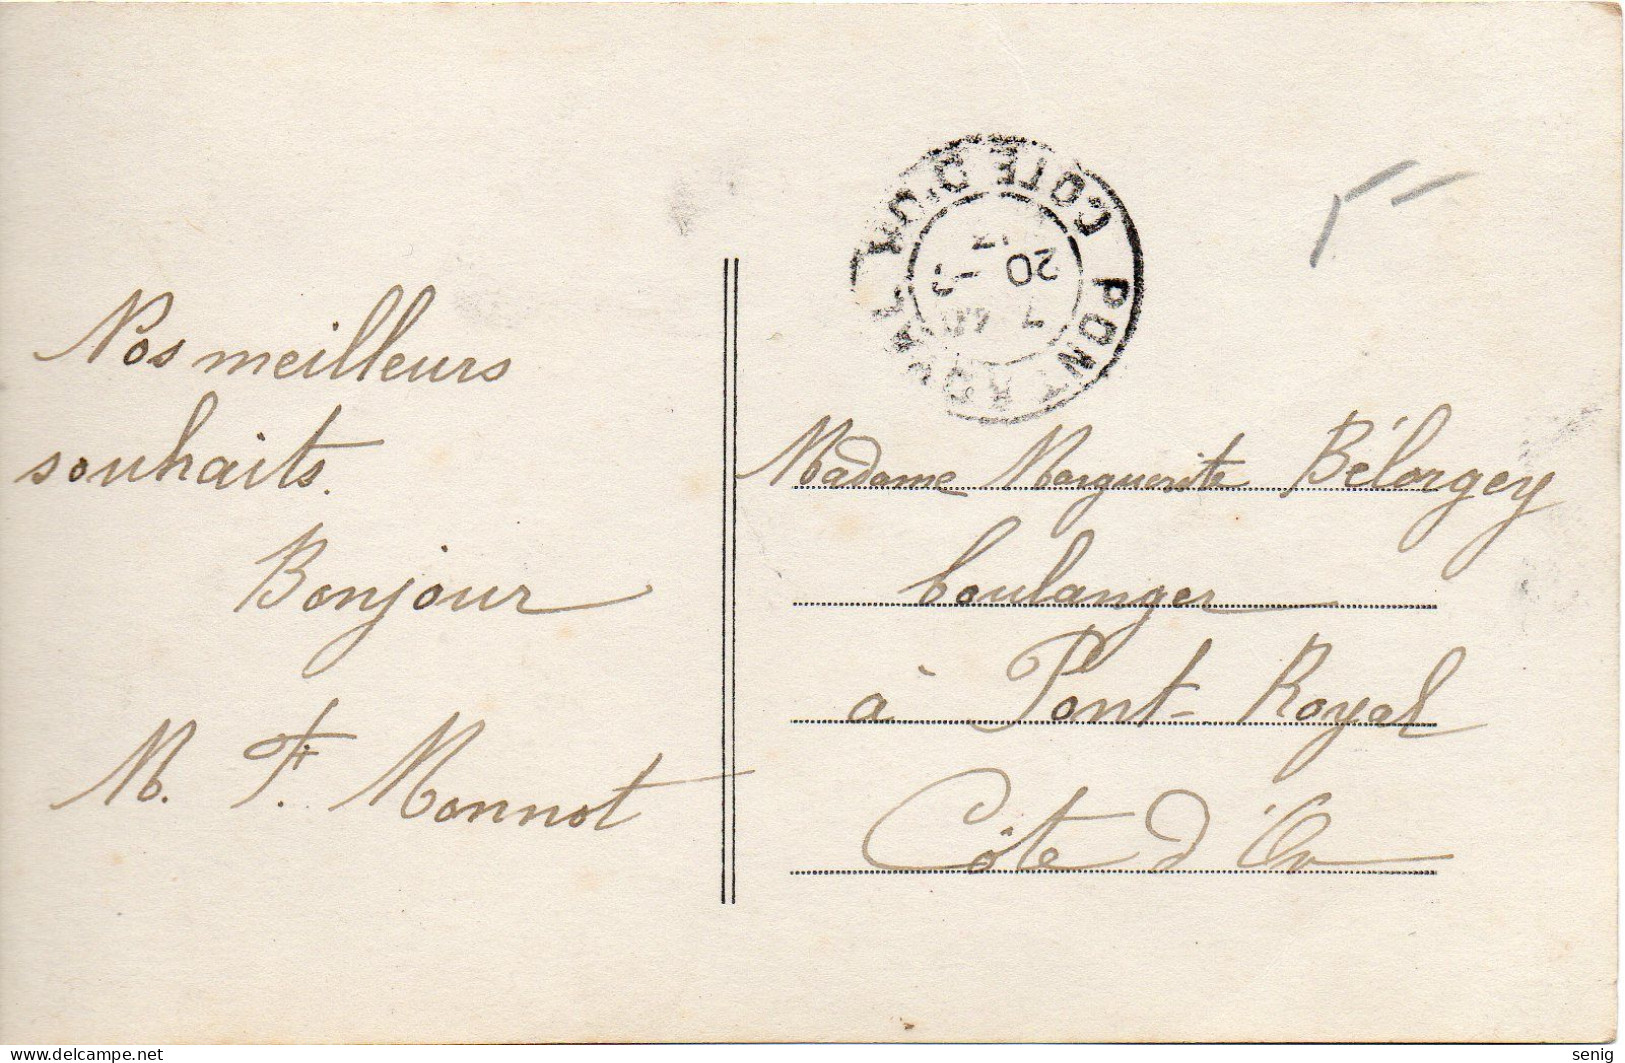 Nos meilleurs
souhaits.
Bonjour
M. F. Monnot
PONT ROYAL
COTE D'OR
20
Madame Marguerite Bélorgey
boulanger
à Pont-Royal
Côte d'Or
delcampe.net
senig